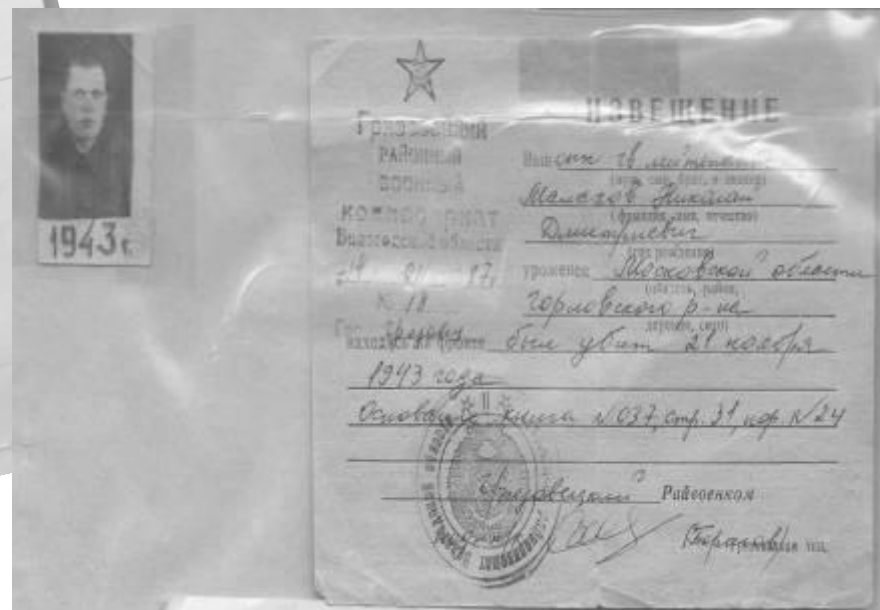 1943 г.
Грязовецкий
РАЙОННЫЙ
ВОЕННЫЙ
КОМИССАРИАТ
Вологодской области
№ 18
Гор. Грязовец
ИЗВЕЩЕНИЕ
Ваш сын гв. лейтенант
(муж, сын, брат, и звание)
Николай
(фамилия, имя, отчество)
Дмитриевич
(год рождения)
уроженец Московской области
(область, район,
Горловского р-на
деревня, село)
находясь на фронте был убит 21 ноября
1943 года
Основание книга № 037, стр. 31, пор. № 24
Грязовецкий Райвоенком